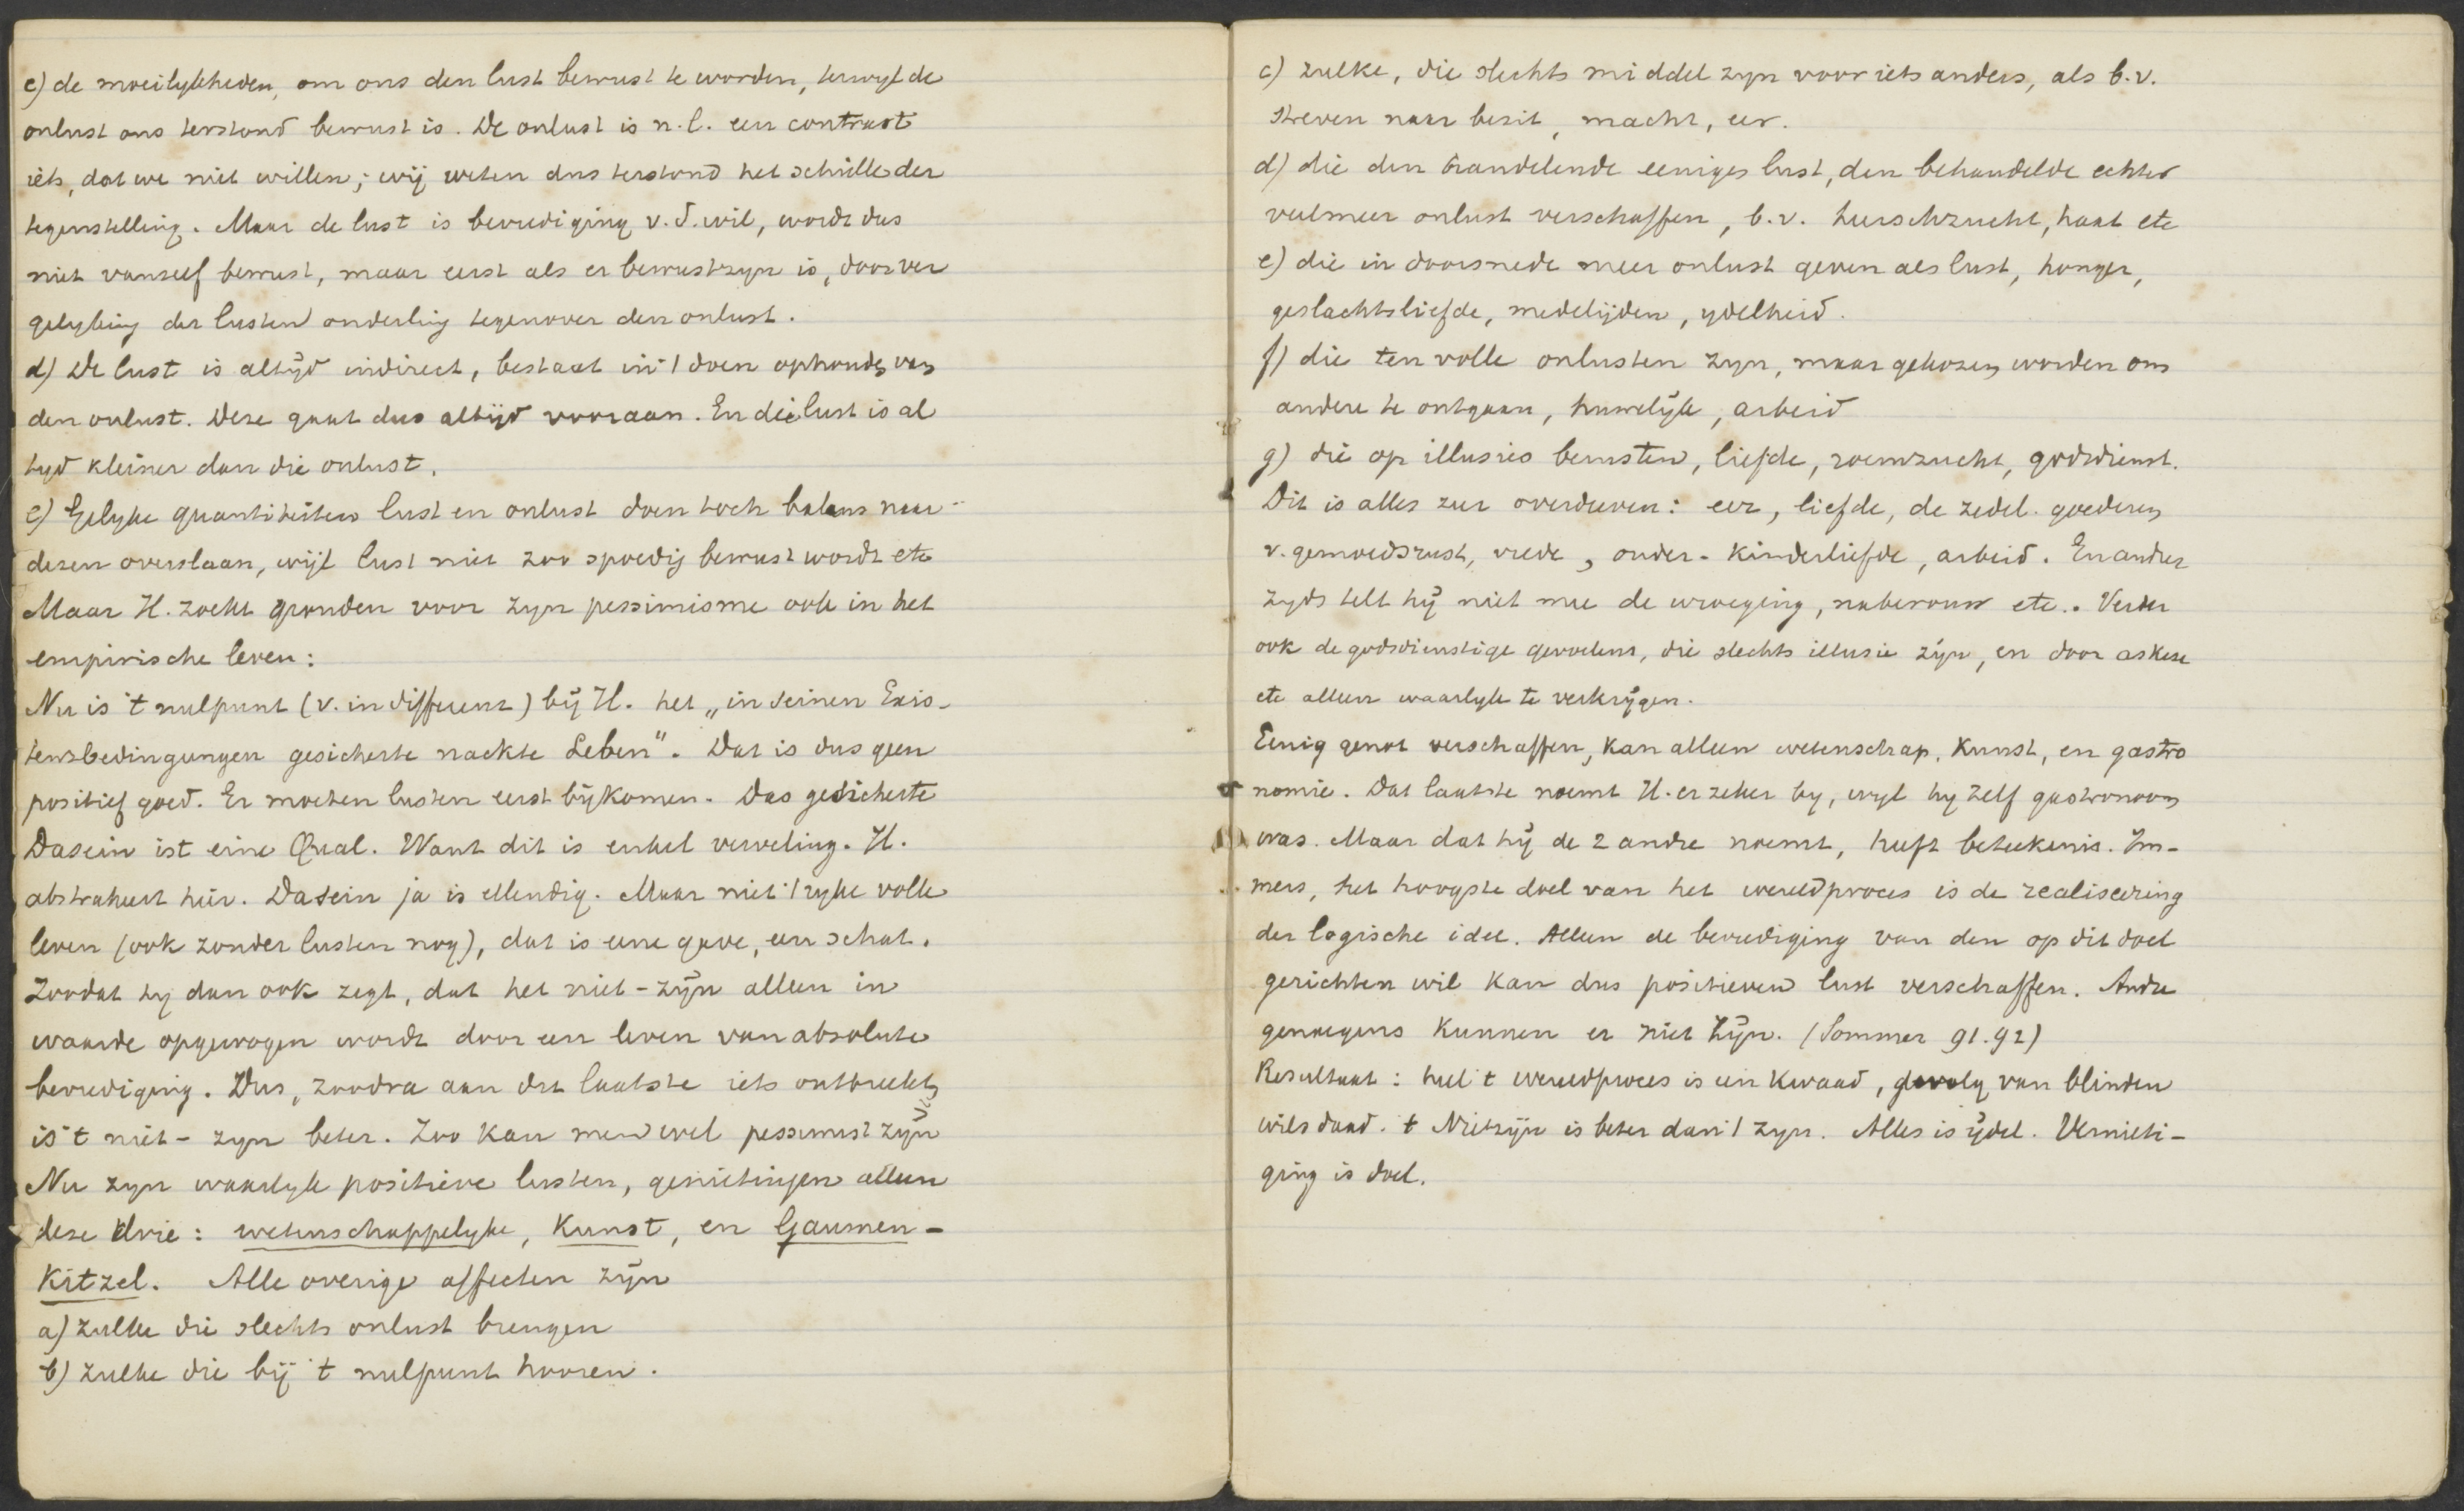 c) de moeilykheden, om ons den lust bewust te worden, terwyl de
onlust ons terstond bewust is. De onlust is n.l. een contrast
iets, dat we niet willen; wij weten dus terstond het schrille der
tegenstelling. Maar de lust is bevrediging v. d. wil, wordt dus
niet vanself bewust, maar eerst als er bewustzyn is, door ver
gelyking der lusten onderling tegenover den onlust.
d) De lust is altyd indirect, bestaat in 't doen ophouden van
den onlust. Deze gaat dus altijd vooraan. En die lust is al
tyd kleiner dan die onlust.
e) Gelyke quantiteiten lust en onlust doen toch balans naar
dezen overslaan, wijl lust niet zoo spoedig bewust wordt etc
Maar H. zoekt gronden voor zyn pessimisme ook in het
empirische leven:
Nu is 't nulpunt (v. indifferent) bij H. het „in seinen Exis-
tensbedingungen gesicherte nackte Leben". Dat is dus geen
positief goed. Er moeten lusten eerst bijkomen. Das gesicherte
Dasein ist eine Qual. Want dit is enkel verveling. H.
abstraheert hier. Dasein ja is ellendig. Maar niet 't ryke volle
leven (ook zonder lusten nog), dat is eene gave, een schat.
Zoodat hy dan ook zegt, dat het niet-zijn alleen in
waarde opgewogen wordt door een leven van absolute
bevrediging. Dus, zoodra aan dat laatste iets ontbreekt,
is 't niet-zyn beter. Zoo kan men wel pessimist zijn
Nu zyn waarlyk positieve lusten, genietingen alleen
deze drie: wetenschappelyke, Kunst, en Gaumen-
Kitzel. Alle overige affecten zijn
a) zulke die slechts onlust brengen
b) zulke die bij 't nulpunt hooren.
c) zulke, die slechts middel zyn voor iets anders, als b.v.
streven naar bezit, macht, eer.
d) die den handelende eeniges lust, den behandelde echter
veelmeer onlust verschaffen, b.v. heerschzucht, haat etc
e) die in doorsnede meer onlust geven als lust, honger,
geslachtsliefde, medelijden, ydelheid.
f) die ten volle onlusten zyn, maar gekozen worden om
andere te ontgaan, huwelijk, arbeid
g) die op illusies berusten, liefde, roemzucht, godsdienst.
Dit is alles zeer overdreven: eer, liefde, de zedel. goederen
v. gemoedsrust, vrede, ouder-kinderliefde, arbeid. En ander
zyds telt hij niet mee de wroeging, naberouw etc. Verder
ook de godsdienstige gevoelens, die slechts illusie zijn, en door askese
etc alleen waarlyk te verkrijgen.
Eenig genot verschaffen, kan alleen wetenschap, Kunst, en gastro
nomie. Dat laatste noemt H. er zeker by, wyl hy zelf gastronoom
was. Maar dat hij de 2 andre noemt, heeft beteekenis. Im-
mers, het hoogste doel van het wereldproces is de realiseering
der logische idee. Alleen de bevrediging van den op dit doel
gerichten wil kan dus positieven lust verschaffen. Andre
genoegens kunnen er niet zijn. (Sommer 91.92)
Resultaat: heel 't wereldproces is een kwaad, gevolg van blinden
wilsdaad. 't Nietzijn is beter dan 't zyn. Alles is ijdel. Vernieti-
ging is doel.